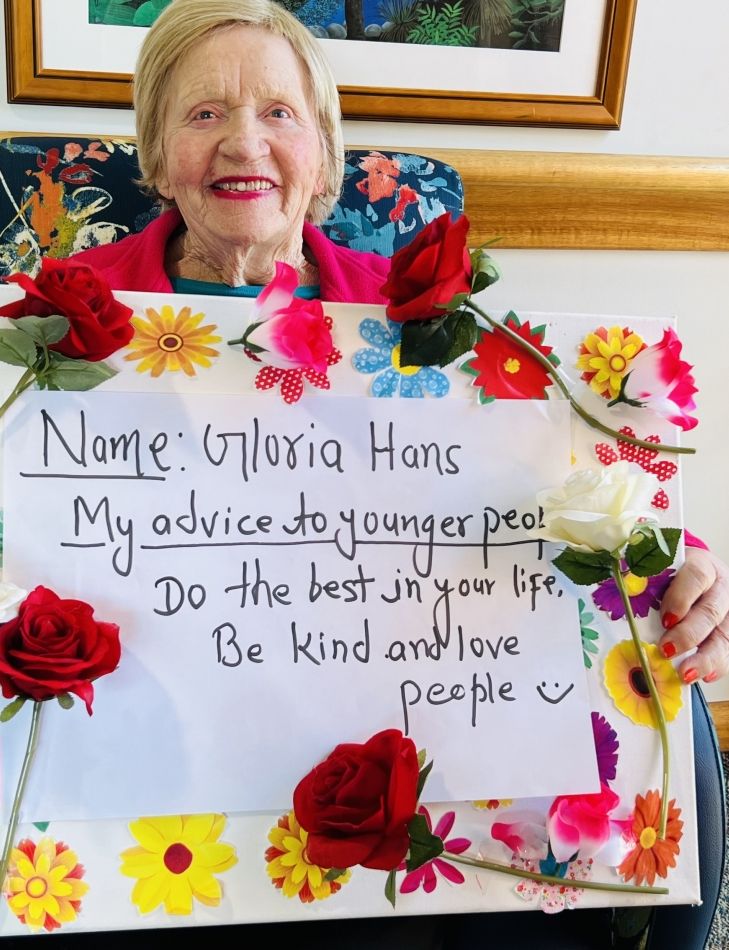 Name: Gloria Hans
My advice to younger peop
Do the best in your life.
Be kind and love
people